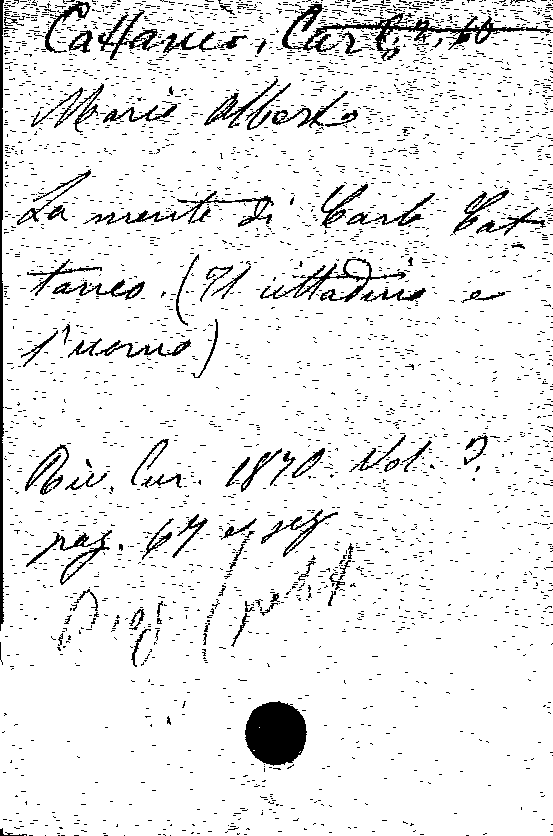 Cattaneo, Carlo
Mario Alberto
La mente di Carlo Cat-
taneo. (Il cittadino e
l'uomo)
Riv. Eur. 1870. Vol. 3.
pag. 67 e seg